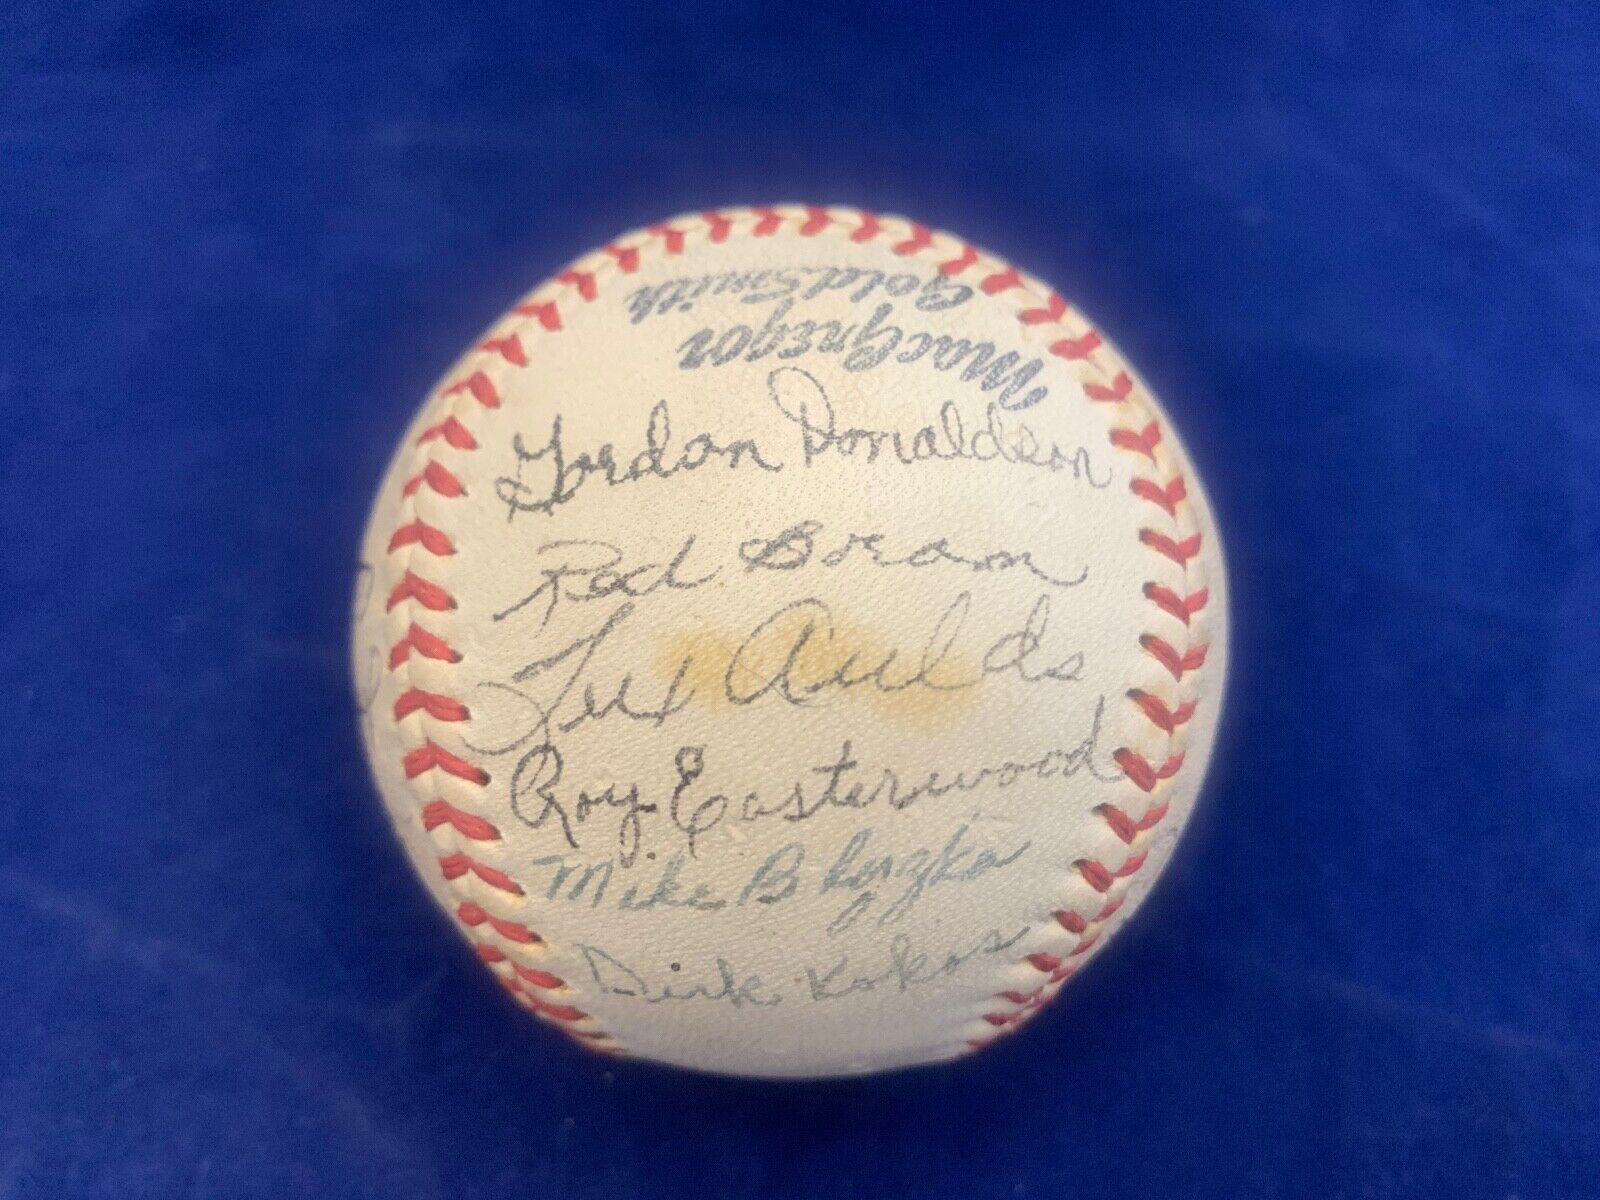 MacGregor
GoldSmith
Gordon Donaldson
Red Boram
Tex Aulds
Roy Easterwood
Mike Blyzka
Dick Kokos